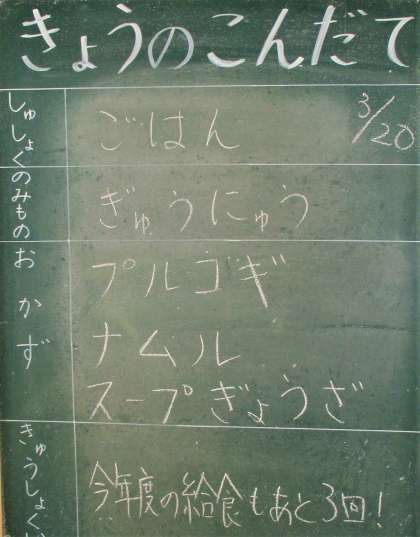 きょうのこんだて
3/20
しゅしょく
ごはん
のみもの
ぎゅうにゅう
おかず
プルコギ
ナムル
スープぎょうざ
きゅうしょく
今年度の給食もあと3回!